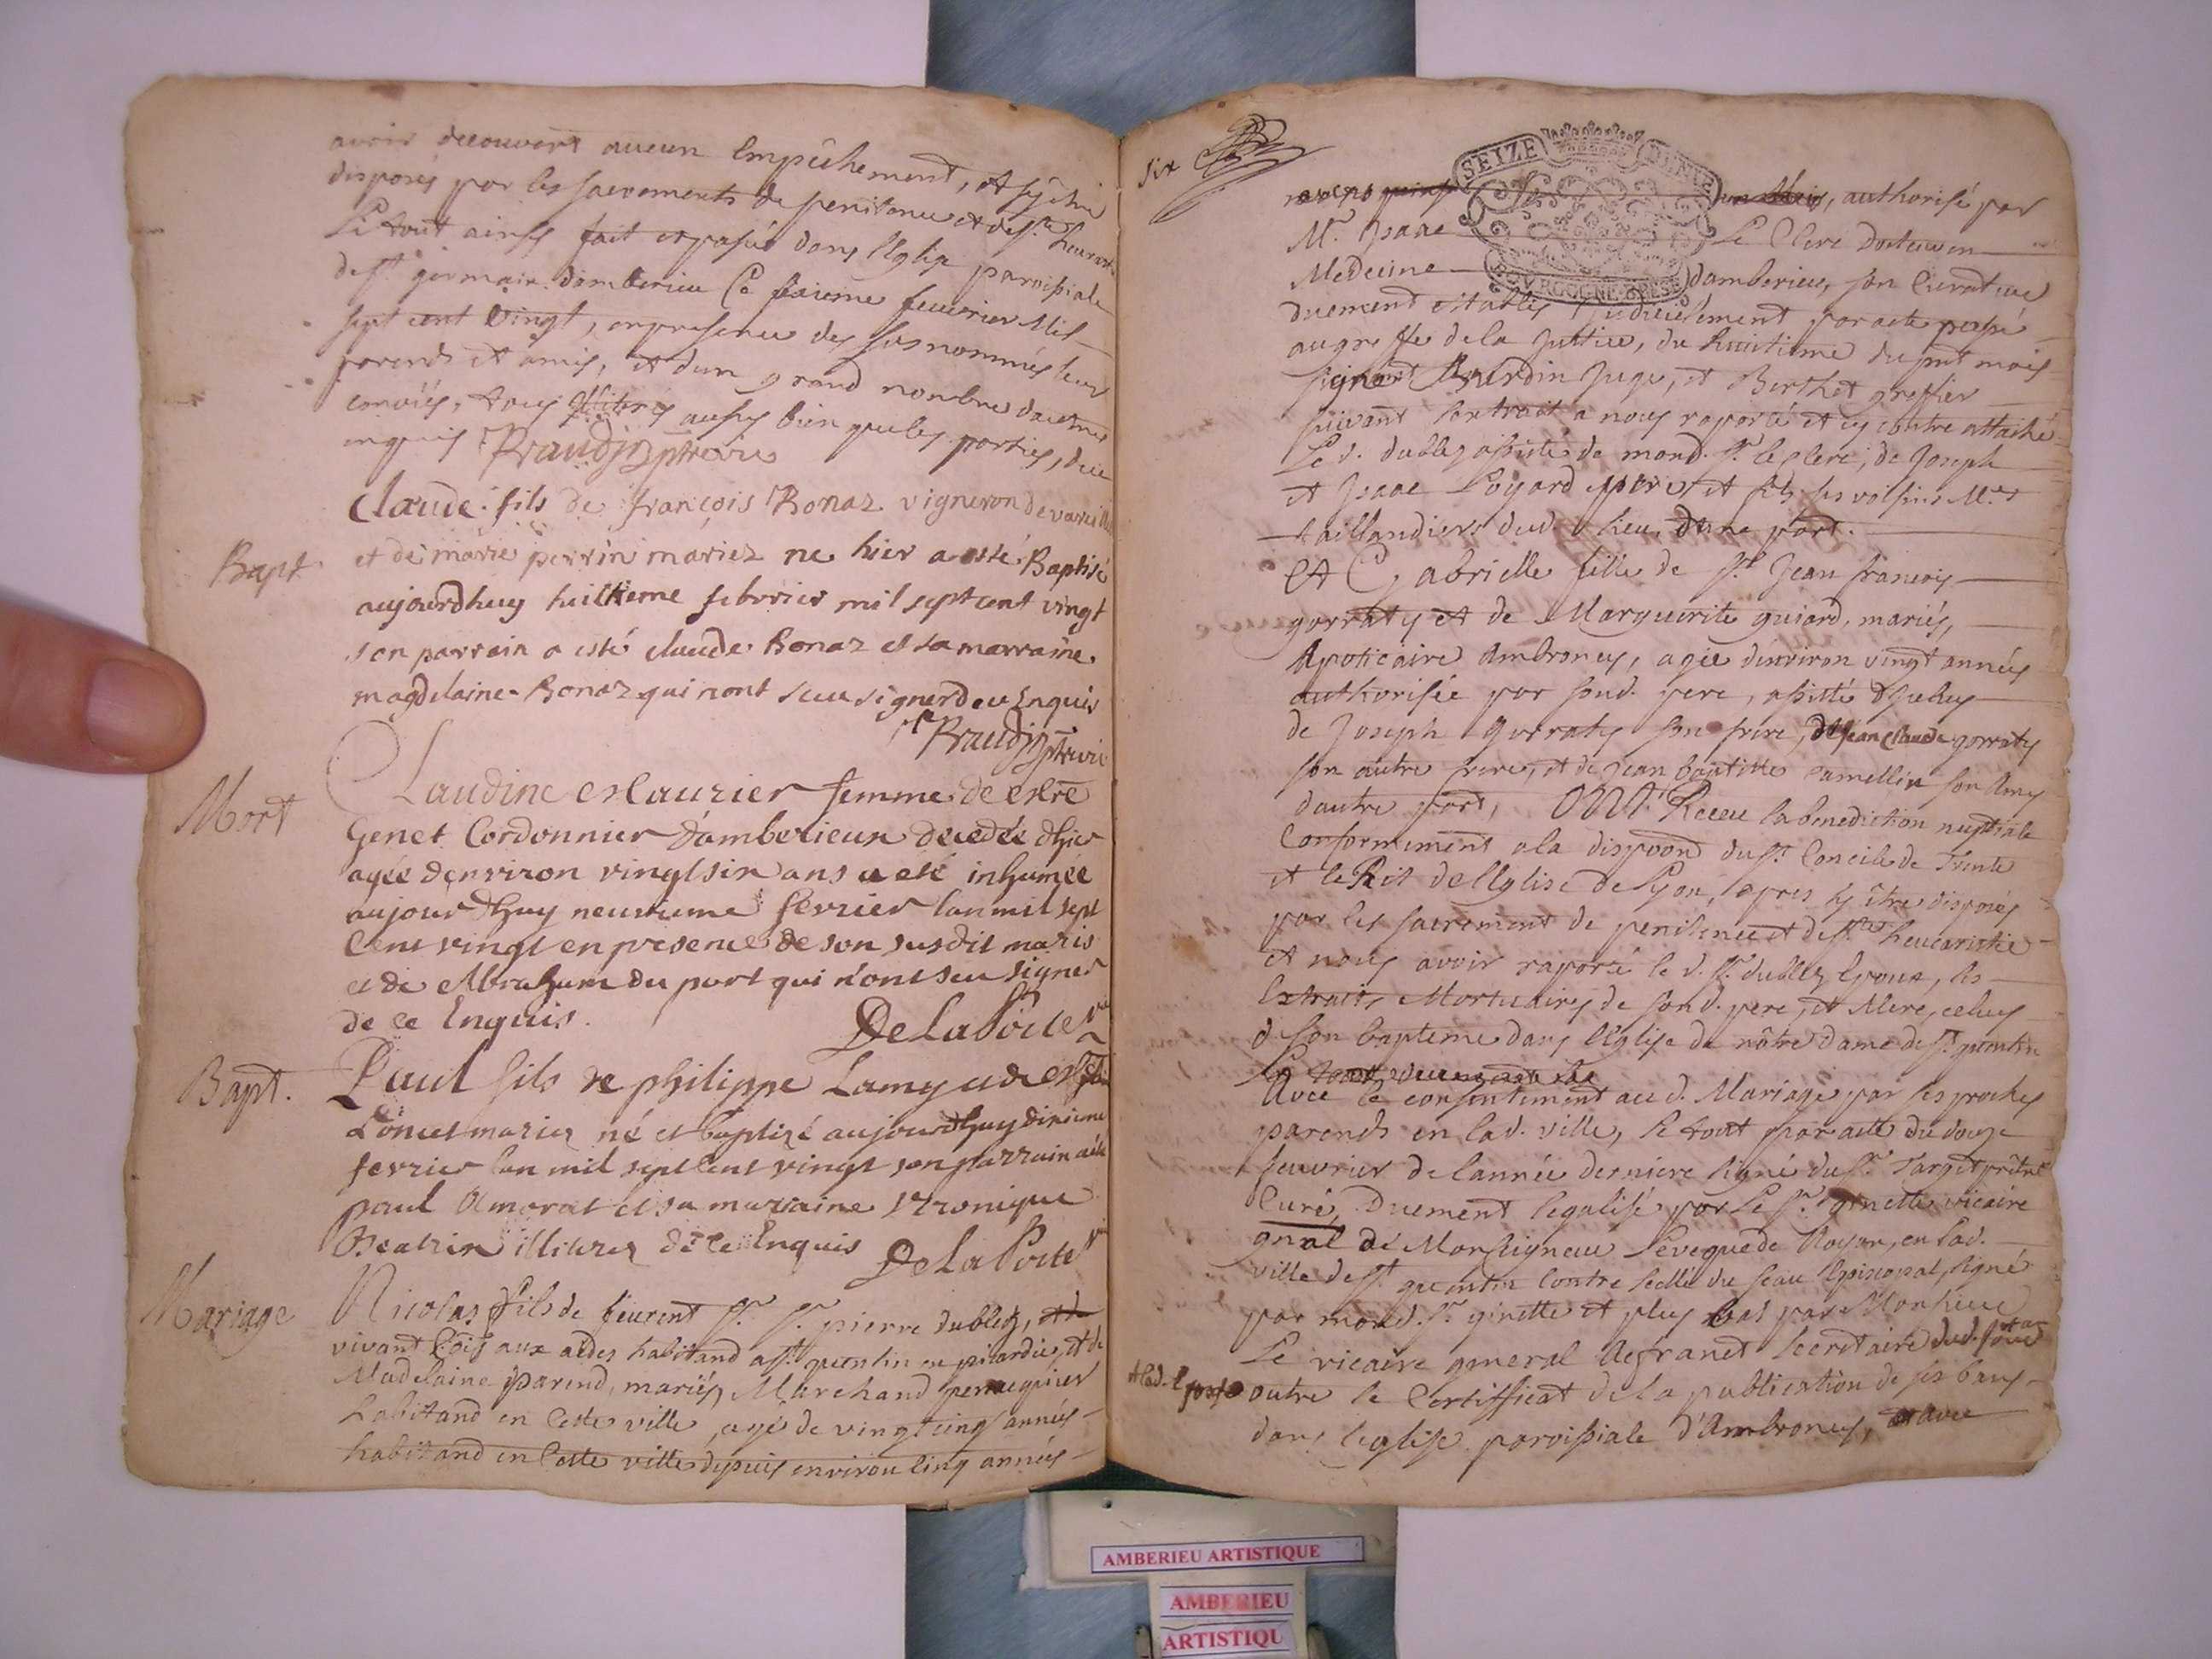 avoir decouvert aucun Empêchement, et s'y être
disposés par les sacrements de penitence et de ste
Le tout ainsy fait et passé dans l'Eglise paroissiale
de st germain d'amberieu Ce feuvrier Mil
sept cent vingt, en presence des susnommés leur
parends et amis, et d'un grand nombre d'autres
conviés, tous illiterés aussy bien que les parties, de ce
inquis
Claude fils de françois Bonaz vigneron de
Bapt
et de marie perrin mariez ne hier a esté Baptisé
aujourdhuy huittieme febvrier mil sept cent vingt
son parrain a esté claude Bonaz et sa marraine
magdelaine Bonaz qui nont sceu signer de ce Enquis
Mort
Claudine femme de
Genet Cordonnier d'amberieux decedée dhier
agée d'environ vingt six ans a eté inhumée
aujourdhuy neuvieme fevrier lan mil sept
Cent vingt en presence de son susdit maris
et de Abraham du port qui n'ont seu signer
de ce Enquis. De La Porte vic
Bapt.
Paul fils de philippe Lamy et de
mariez né et baptizé aujourdhuy dixieme
fevrier lan mil sept Cent vingt son parrain a été
paul Amorat et sa maraine Veronique
illiterez de ce Enquis De La Porte vic
Mariage
Nicolas fils de feurent Sr. Sr. pierre dublez,
vivant aux aides habitand a St. quentin en picardie, et de
Madelaine parend, mariés, Marchand perruquier
habitand en Cette ville, agé de vingt cinq années
habitand en Cette ville depuis environ Cinq années
six
SEIZE
BOURGOGNE BRESSE
authorisé par
Mr. Isaac Le Clerc docteur en
Medecine damberieu, son Curateur
duement etablis judicielement par acte passé
au greffe de la justice, du huictieme du pnt mois
signé Burdin Juge, et Berthet greffier
suivant l'extrait a nous raporté et cy contre attaché
Le d. dublez assisté de mond. Sr. le clerc, de Joseph
et Isaac pere et fils ses voisins Mes
taillandiers dud. lieu, d'une part.
Et Gabrielle fille de Sr Jean francois
gorraty et de Marguerite guiard, mariés,
Apoticaire Ambroney, agée denviron vingt années
authorisée par sond. pere, assisté d'iceluy
de Joseph gorraty son frere, de Jean Claude gorraty
son autre frere, et de Jean baptiste ramellin son Amy
dautre part, ONT Receu la benediction nuptiale
Conformement a la dispoon du St. Concile de Trente
et le Rit de l'Eglise de Lyon, apres s'y être disposés
par les sacrement de penitence et de ste heucaristie
et nous avoir raporté le d. Sr. dublez Epoux, les
Extraits Mortuaires de sond. pere, et Mere, celuy
d son bapteme dans l'Eglise de nôtre dame de St. quentin
Avec le consentement aud. Mariage par ses proches
parends en lad. ville, le tout par acte du douze
feuvrier de l'année derniere signé du Sr. Targit prêtre
Curé, Duement legalisé par Le Sr. ginette vicaire
gnral de Monseigneur l'eveque de Noyon, en lad.
ville de St quentin Contre scellé du seau Episcopal, signé
par mond. Sr. ginette et plus bas par Monsieur
Le vicaire general secretaire
outre le Certifficat de la publication de ses bans
dans l'eglise paroissiale d'Ambroney, avec
AMBERIEU ARTISTIQUE
AMBERIEU
ARTISTIQU